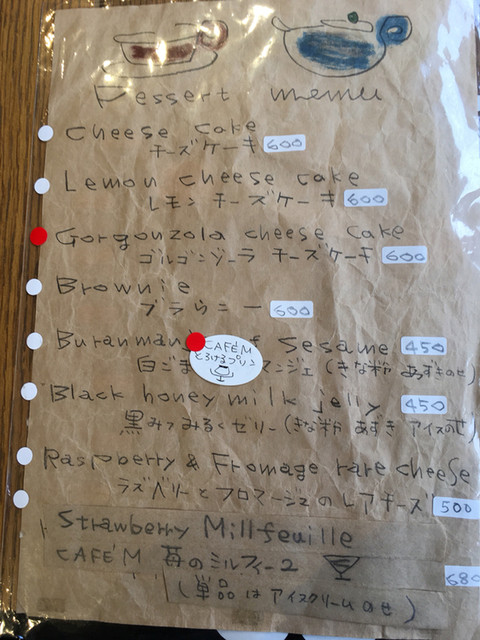 Dessert menu
Cheese cake
チーズケーキ 600
Lemon cheese cake
レモン チーズケーキ 600
Gorgonzola cheese cake
ゴルゴンゾーラ チーズケーキ 600
Brownie
ブラウニー 600
Sesame 450
CAFE'M
とろけるプリン
白ごま ンジェ (きな粉 あずきのせ)
Black honey milk jelly 450
黒みつみるくゼリー (きな粉 あずき アイスのせ)
Raspberry & Fromage rare cheese
ラズベリーとフロマージュのレアチーズ 500
Strawberry Millfeuille
CAFE'M 苺のミルフィーユ
680
(単品はアイスクリームのせ)